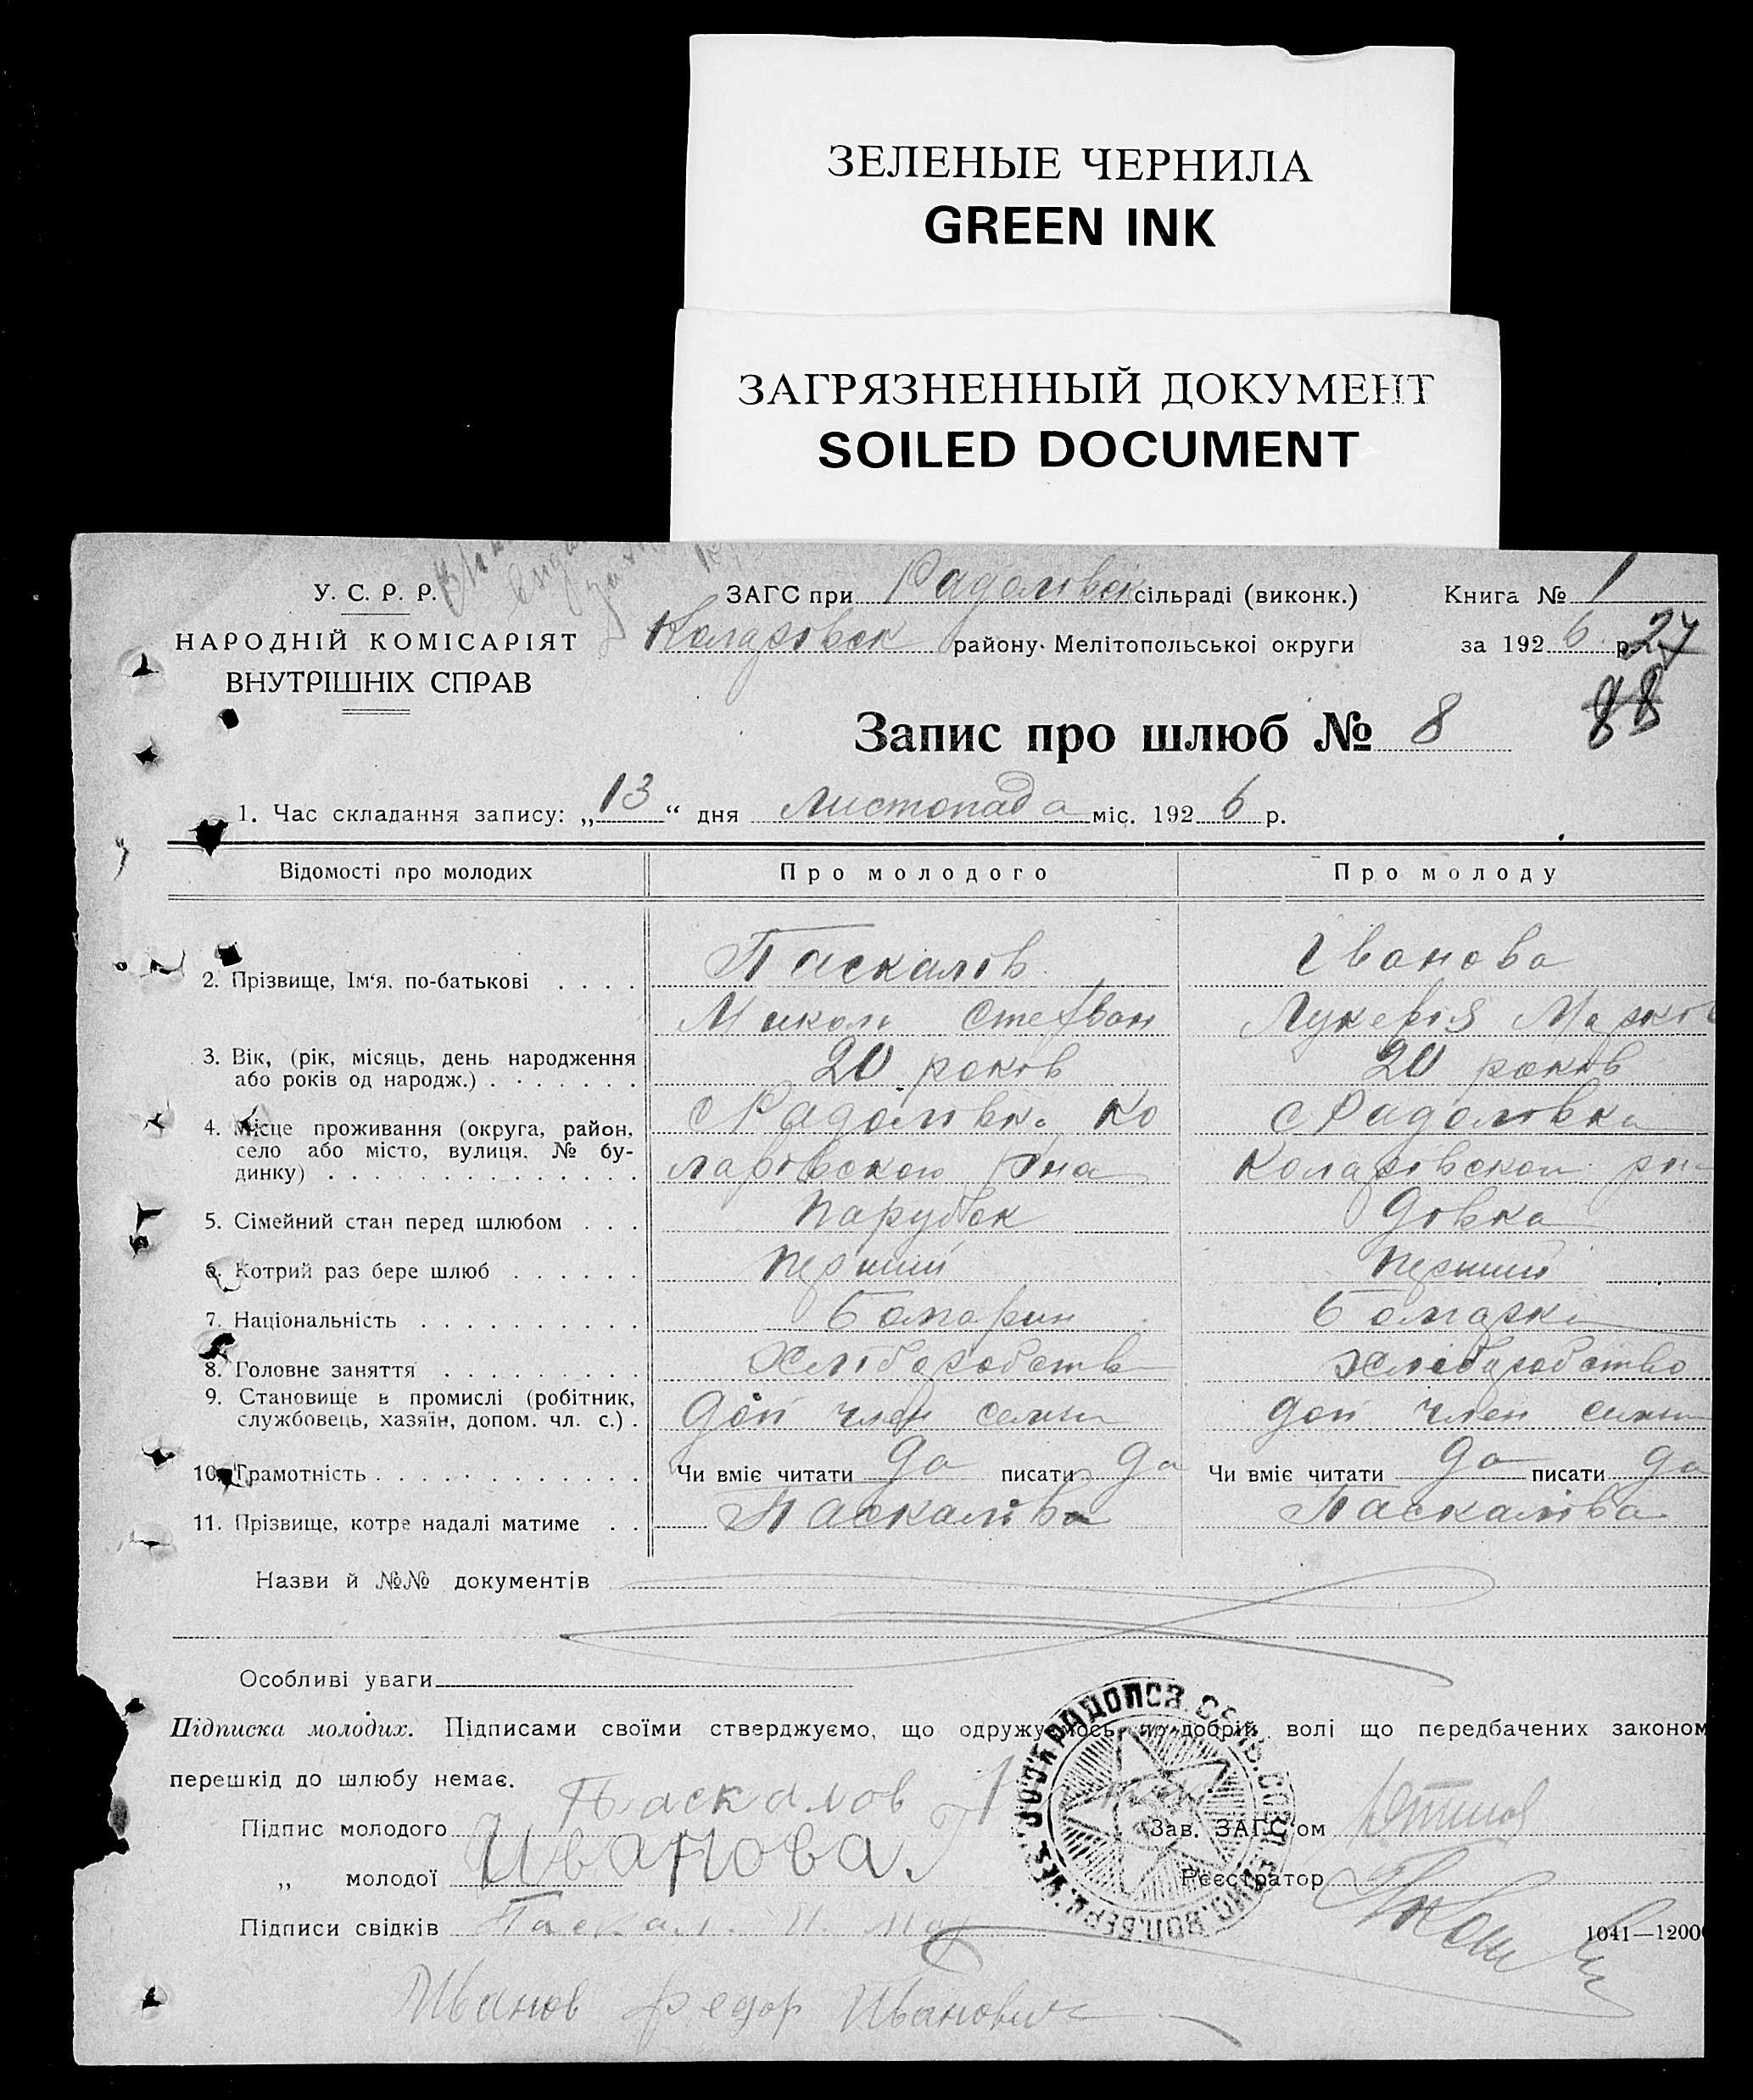 ЗЕЛЕНЫЕ ЧЕРНИЛА
GREEN INK
ЗАГРЯЗНЕННЫЙ ДОКУМЕНТ
SOILED DOCUMENT
У. С. Р. Р.
НАРОДНІЙ КОМІСАРІЯТ
ВНУТРІШНІХ СПРАВ
ЗАГС при Радолівск сільраді (виконк.) Книга № 1
Коларовск району Мелітопольської округи за 1926 р. 27
88
Запис про шлюб № 8
1. Час складання запису: „13“ дня Листопада міс. 1926 р.
Відомості про молодих Про молодого Про молоду
Паскалів Іванова
2. Прізвище, Ім‘я, по-батькові . . . .
Микола Стефван Лукерія Марков
3. Вік, (рік, місяць, день народження 20 років 20 років
або років од народж.) . . . . . . .
4. Місце проживання (округа, район, с Радолівка Ко с Радоловка
село або місто, вулиця, № бу-
динку) . . . . . . . . . . . . . . . ларовской рна Коларовской рн
5. Сімейний стан перед шлюбом . . . Парубок Дівка
6. Котрий раз бере шлюб . . . . . . Перший Перший
7. Національність . . . . . . . . . . Болгарин Болгарка
8. Головне заняття . . . . . . . . . Хліборобств Хліборобство
9. Становище в промислі (робітник,
службовець, хазяїн, допом. чл. с.) . Доп член семьи доп член семьи
10. Грамотність . . . . . . . . . . . . Чи вміє читати да писати да Чи вміє читати да писати да
11. Прізвище, котре надалі матиме . . Паскаліва Паскаліва
Назви й №№ документів
Особливі уваги
Підписка молодих. Підписами своїми стверджуємо, що одружуємось по добрій волі що передбачених законом
перешкід до шлюбу немає.
Підпис молодого Паскалов Зав. ЗАГС‘ом
„ молодої Иванова Реєстратор
Підписи свідків Паскал. 1041—12000
Иванов Федор Иванович